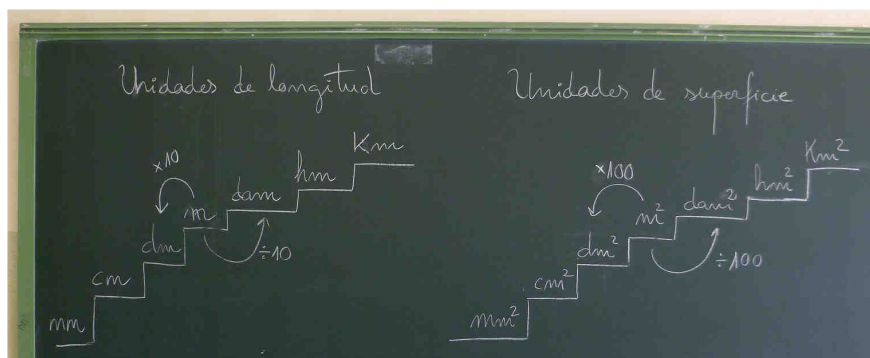 Unidades de longitud
mm
cm
dm
m
dam
hm
Km
×10
÷10
Unidades de superficie
mm²
cm²
dm²
m²
dam²
hm²
Km²
×100
÷100